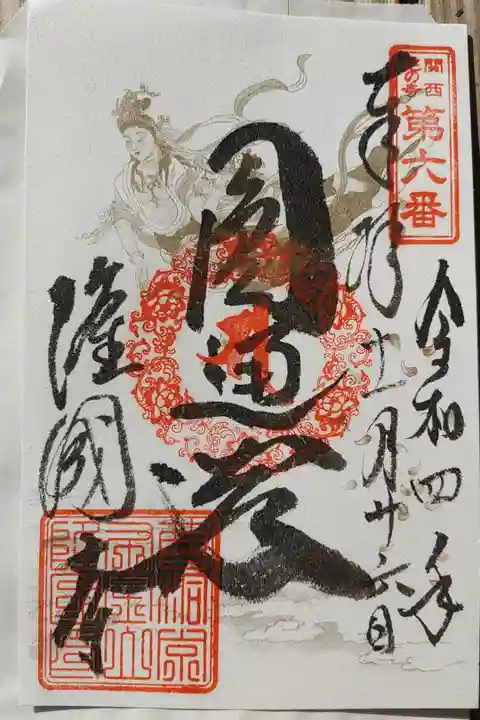 関西
花の寺
第六番
奉拜
令和四年
十一月十六日
圓通
隆國寺